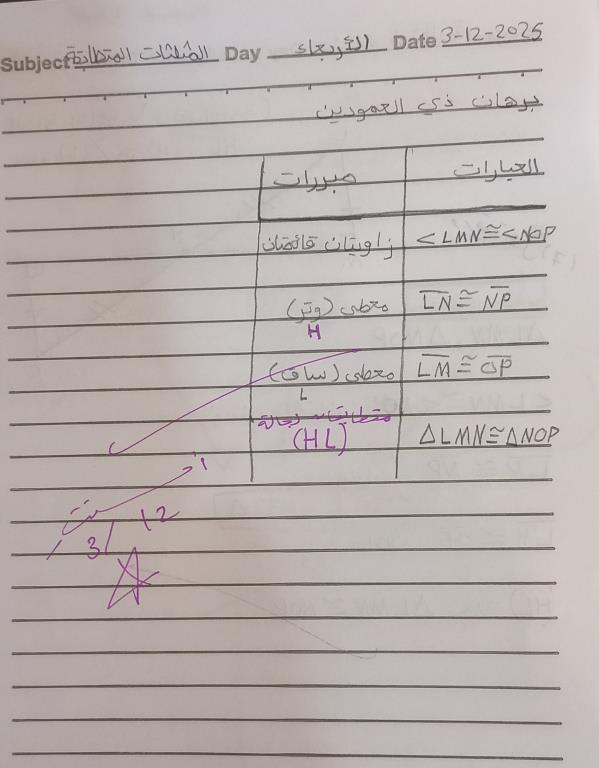 Subject المثلثات المتطابقة Day الأربعاء Date 3-12-2025
برهان ذي العمودين
العبارات مبررات
<LMN≅<NOP زاويتان قائمتان
LN≅NP معطى (وتر)
H
LM≅OP معطى (ساق)
L
متطابقان بحالة
△LMN≅△NOP (HL)
3/12